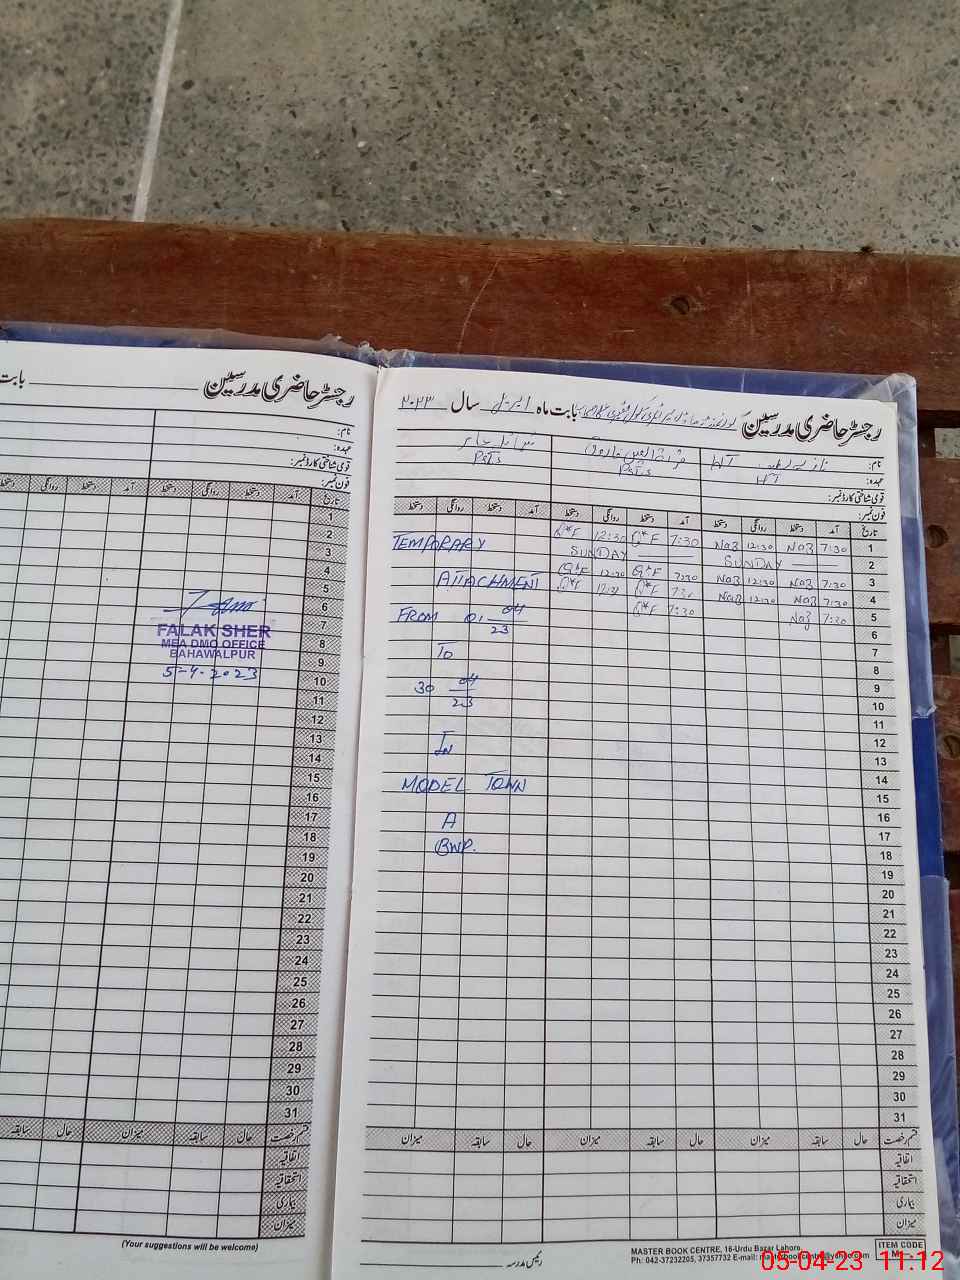 رجسٹر حاضری مدرسین
بابت
نام:
عہدہ:
قومی شناختی کارڈ نمبر:
فون نمبر:
تاریخ آمد دستخط روانگی دستخط آمد دستخط روانگی دستخط
1
2
3
4
5
6
7
8
9
10
11
12
13
14
15
16
17
18
19
20
21
22
23
24
25
26
27
28
29
30
31
FALAK SHER
MEA DMO OFFICE
BAHAWALPUR
5-4-2023
قسم رخصت حال سابقہ میزان حال سابقہ
اتفاقیہ
استحقاقیہ
بیماری
میزان
(Your suggestions will be welcome)
رجسٹر حاضری مدرسین
بابت ماہ اپریل سال ۲۰۲۳
نام:
عہدہ: HT PSTs PSTs
قومی شناختی کارڈ نمبر:
فون نمبر:
تاریخ آمد دستخط روانگی دستخط آمد دستخط روانگی دستخط آمد دستخط روانگی دستخط
1 7:30 Naz 12:30 Naz 7:30 Q*F 12:30 Q*F
2 SUNDAY SUNDAY
3 7:30 Naz 12:30 Naz 7:30 Q*F 12:30 Q*F
4 7:30 Naz 12:30 Naz Q*F Q*F
5 7:30 Naz 7:30 Q*F
6
7
8
9
10
11
12
13
14
15
16
17
18
19
20
21
22
23
24
25
26
27
28
29
30
31
TEMPORARY
ATTACHMENT
FROM 01-04/23
To
30 04/23
IN
MODEL TOWN
A
BWP.
قسم رخصت حال سابقہ میزان حال سابقہ میزان حال سابقہ میزان
اتفاقیہ
استحقاقیہ
بیماری
میزان
رئیس مدرسہ
MASTER BOOK CENTRE, 16-Urdu Bazar Lahore.
Ph: 042-37232205, 37357732 E-mail: masterbookcentre@yahoo.com
ITEM CODE
05-04-23 11:12